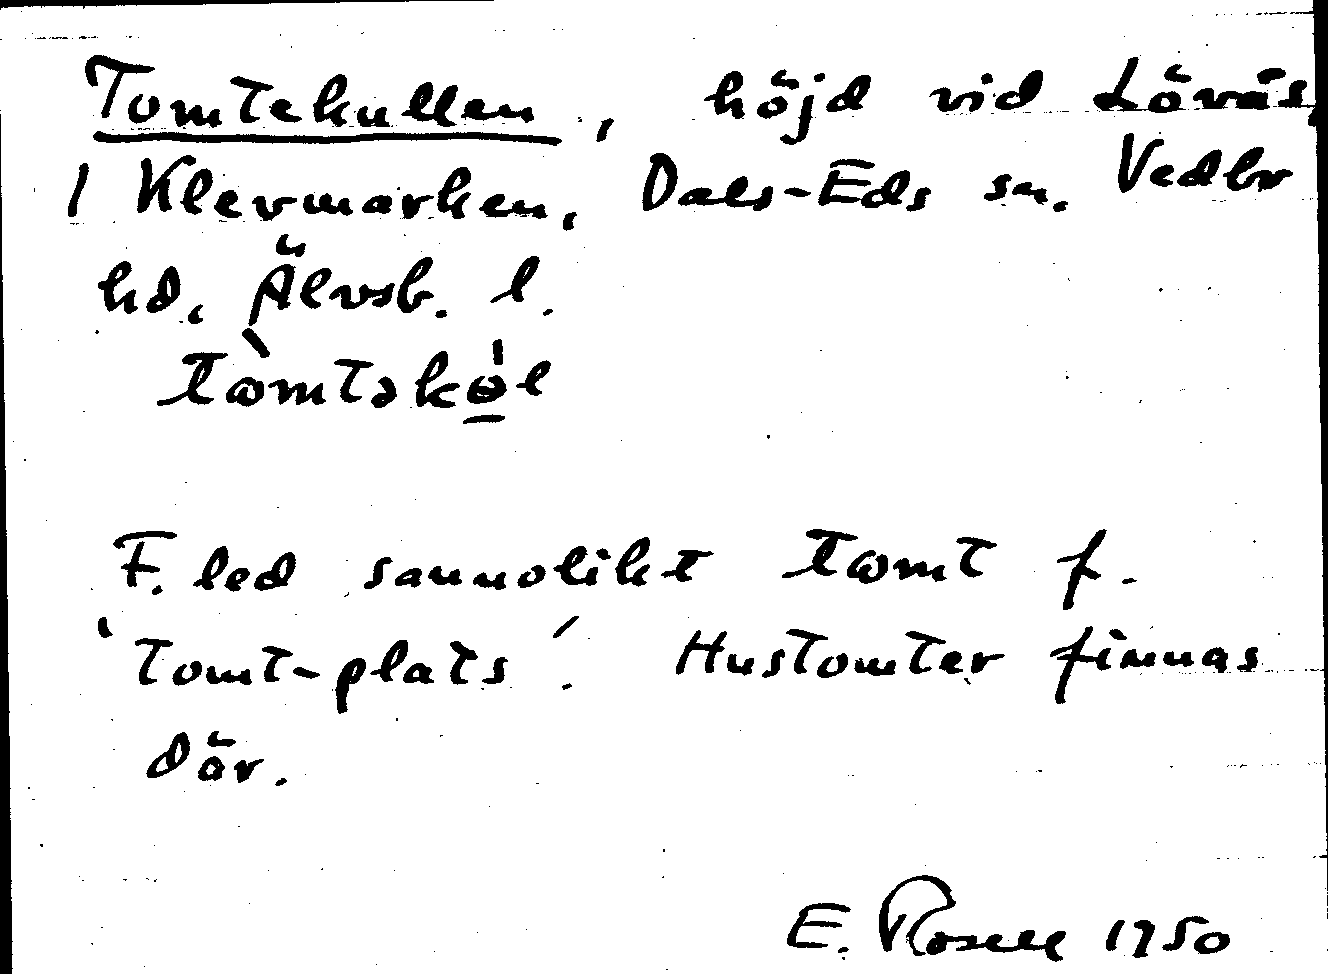 Tomtekullen, höjd vid Lövås,
1 Klevmarken, Dals-Eds sn. Vedbr
hd, Älvsb. l.
F. led sannolikt tomt f.
'tomt-plats'. Hustomter finnas
där.
E. Rosell 1950